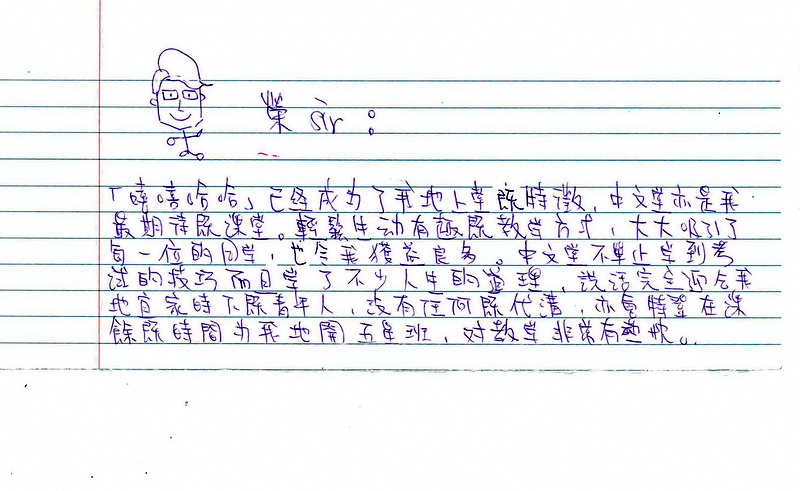 榮 sir：
「嘻嘻哈哈」已经成为了我地上堂既特徵，中文堂亦是我
最期待既課堂。輕鬆生动有趣既教学方式，大大吸引了
每一位的同学，也令我獲益良多。中文堂不单止学到考
试的技巧而且学了不少人生的道理，說话完全迎合我
地宜家時下既青年人，没有任何既代溝，亦會特登在課
餘既時間为我地開五星班，对教学非常有熱忱。